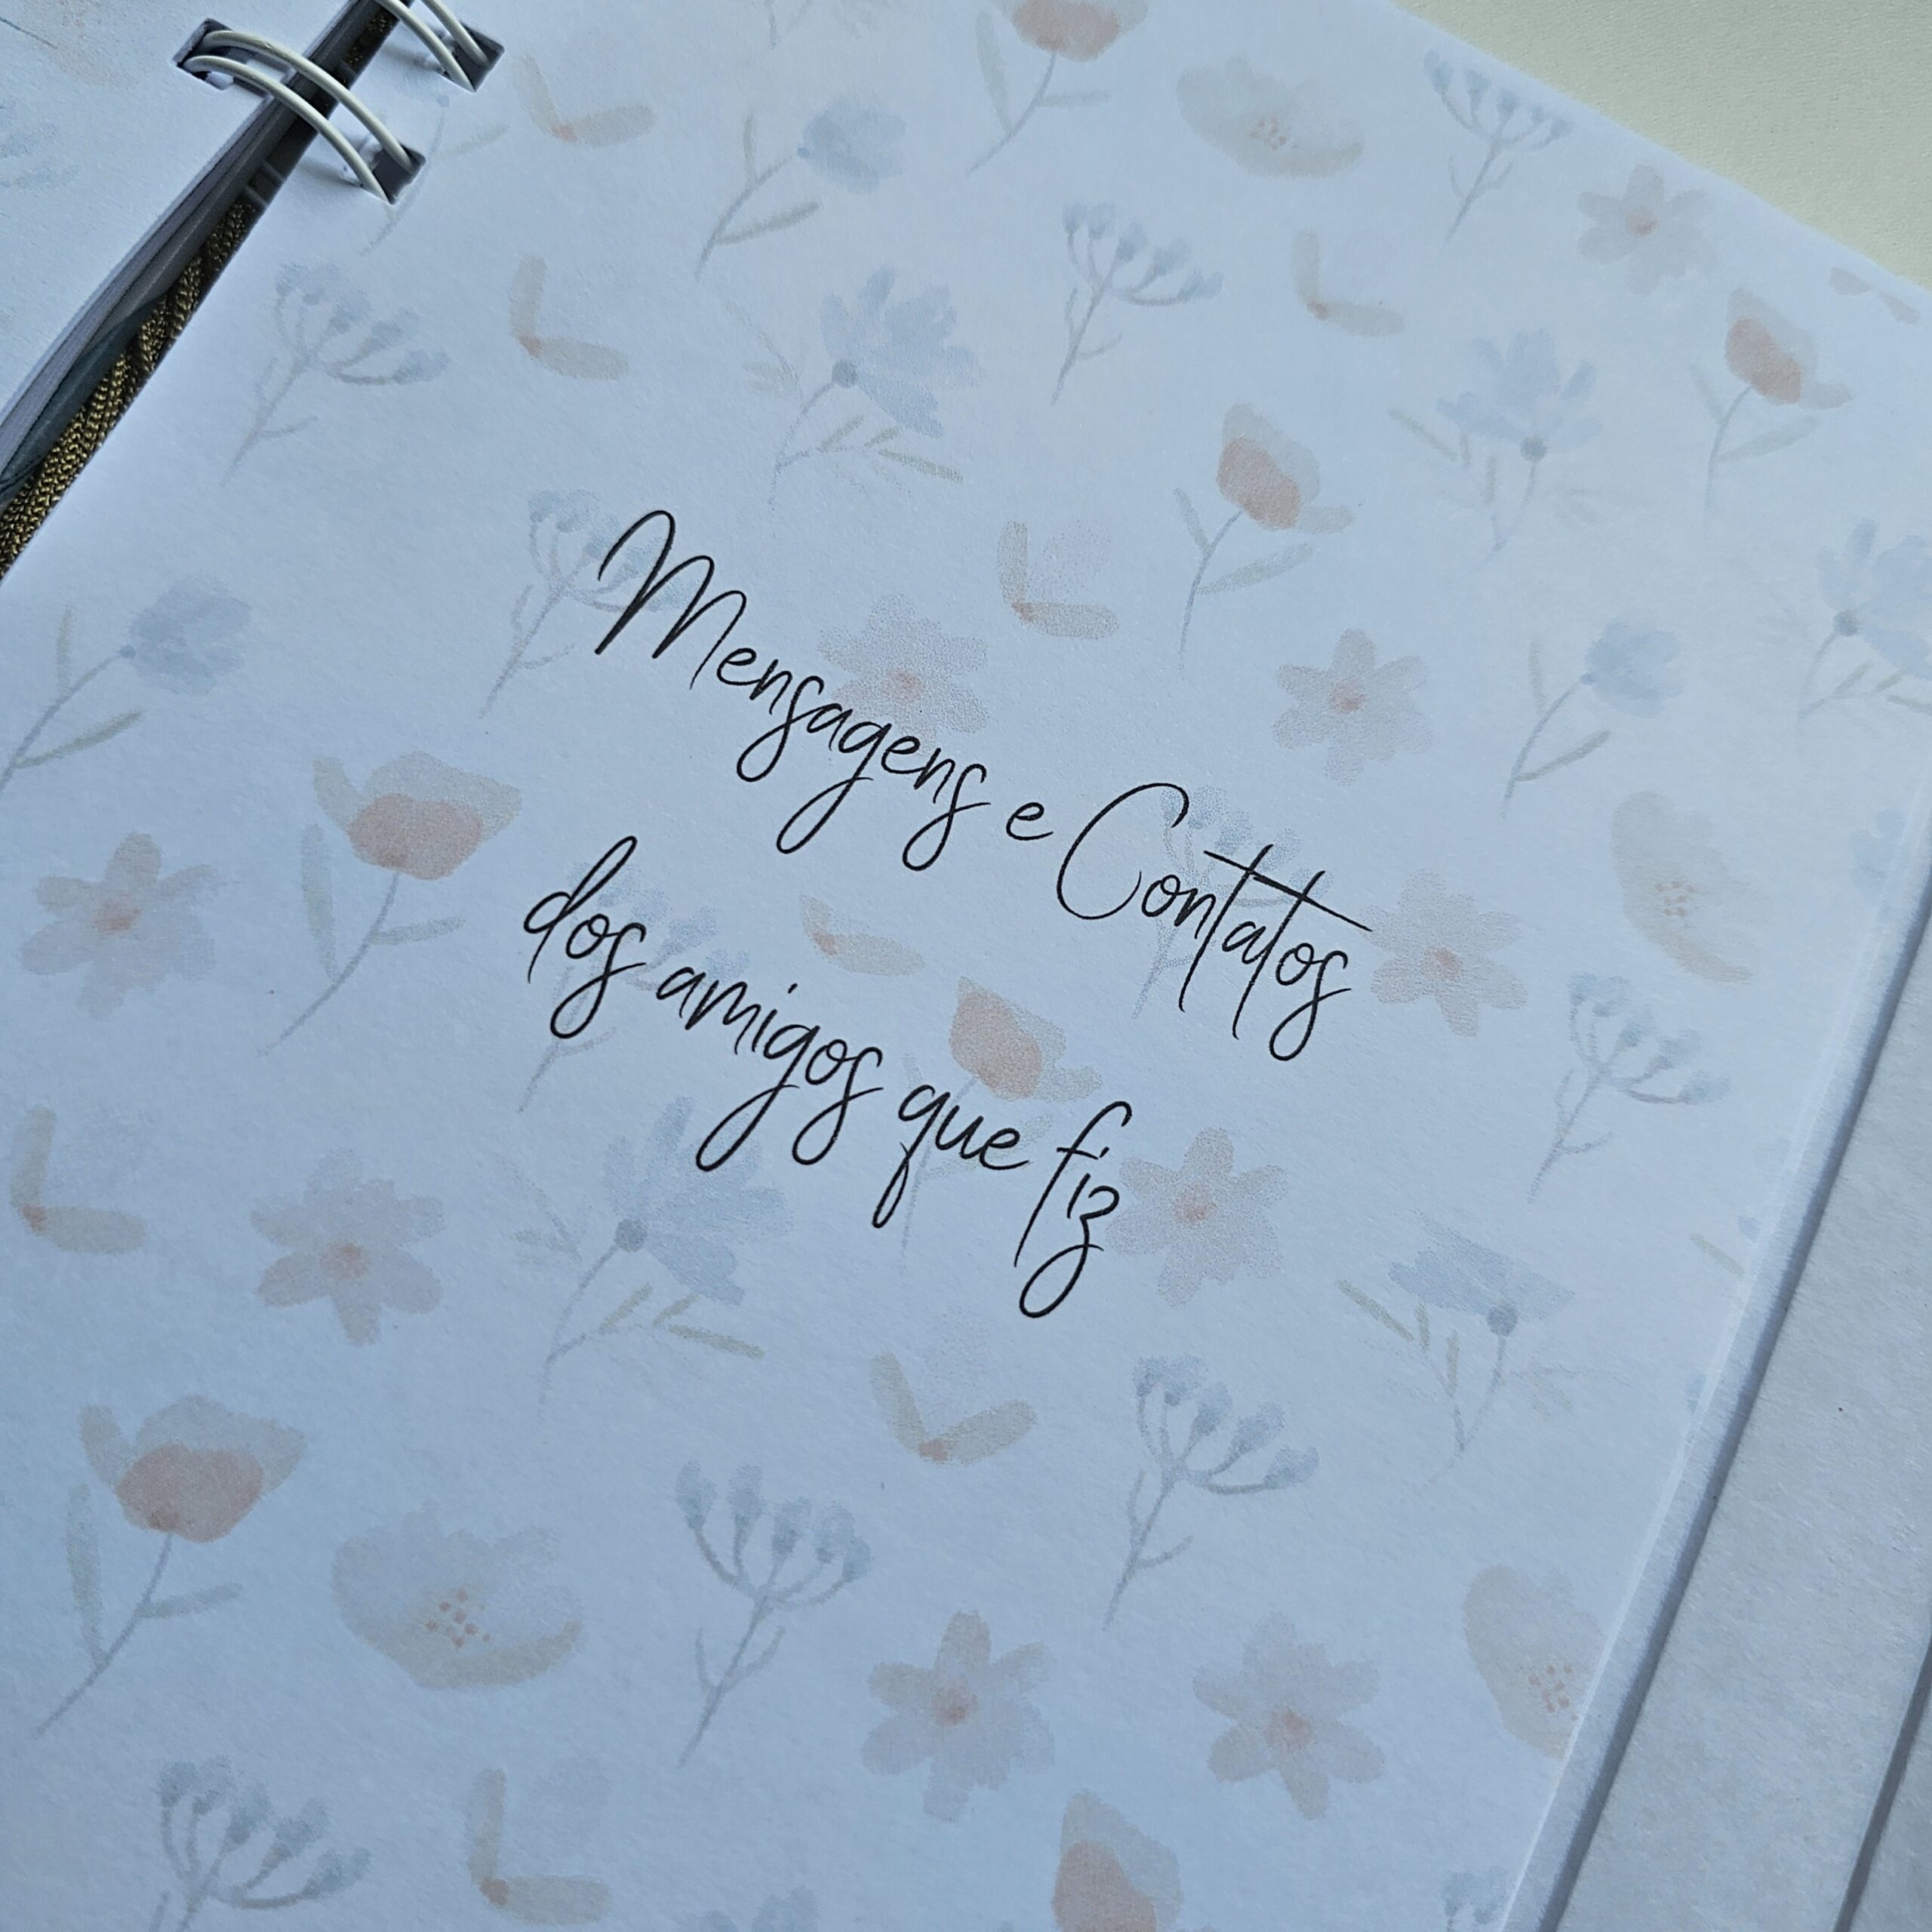 Mensagens e Contatos
dos amigos que fiz